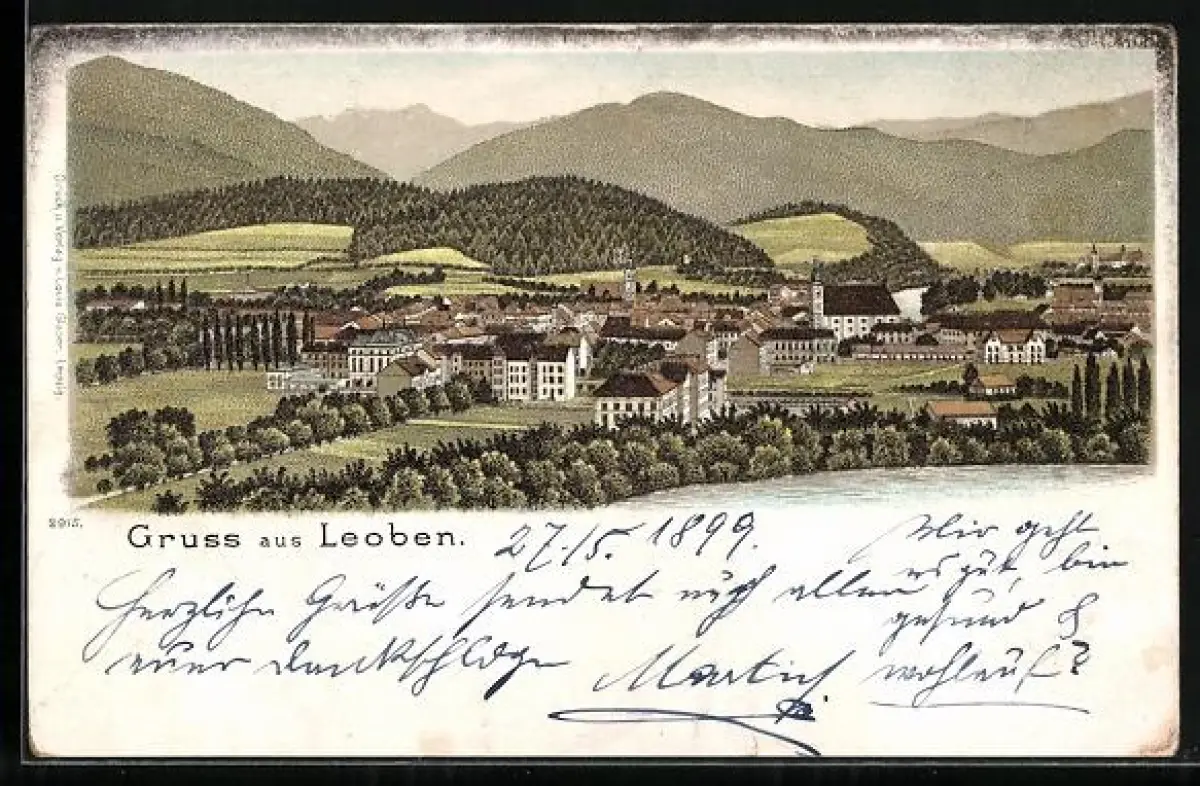 Druck u. Verlag v. Louis Glaser, Leipzig.
2915.
Gruss aus Leoben.
27./5. 1899.
Herzliche Grüße sendet euch allen
euer
Mir geht
es gut, bin
gesund &
wohlauf